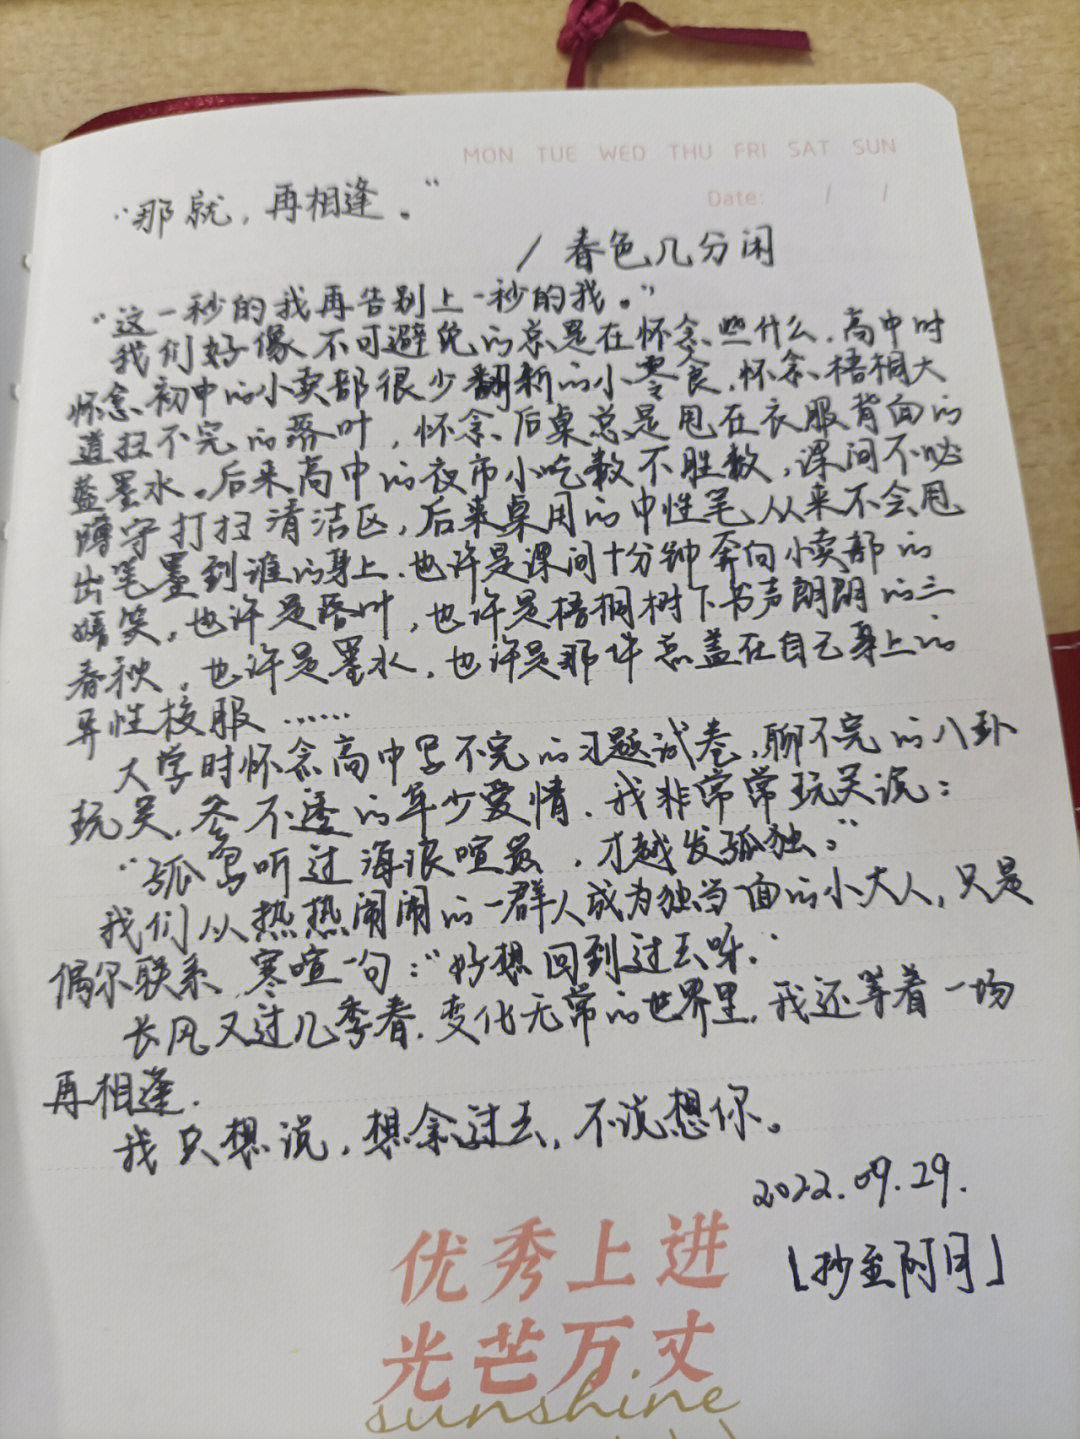 MON TUE WED THU FRI SAT SUN
Date: / /
“那就,再相逢。”
/ 春色几分闲
“这一秒的我再告别上一秒的我。”
我们好像不可避免的总是在怀念些什么,高中时
怀念初中的小卖部很少翻新的小零食,怀念梧桐大
道扫不完的落叶,怀念后桌总是甩在衣服背面的
蓝墨水。后来高中的夜市小吃数不胜数,课间不必
蹲守打扫清洁区,后来桌用的中性笔从来不会甩
出笔墨到谁的身上.也许是课间十分钟奔向小卖部的
嬉笑,也许是落叶,也许是梧桐树下书声朗朗的三
春秋,也许是墨水,也许是那件总盖在自己身上的
异性校服……
大学时怀念高中写不完的习题试卷,聊不完的八卦
玩笑,参不透的年少爱情.我非常常玩笑说:
“孤岛听过海浪喧嚣,才越发孤独。”
我们从热热闹闹的一群人成为独当面的小大人,只是
偶尔联系,寒喧一句:“好想回到过去呀.”
长风又过几季春.变化无常的世界里,我还等着一场
再相逢.
我只想说,想念过去,不说想你。
2022.09.29.
「抄至阿月」
优秀上进
光芒万丈
sunshine